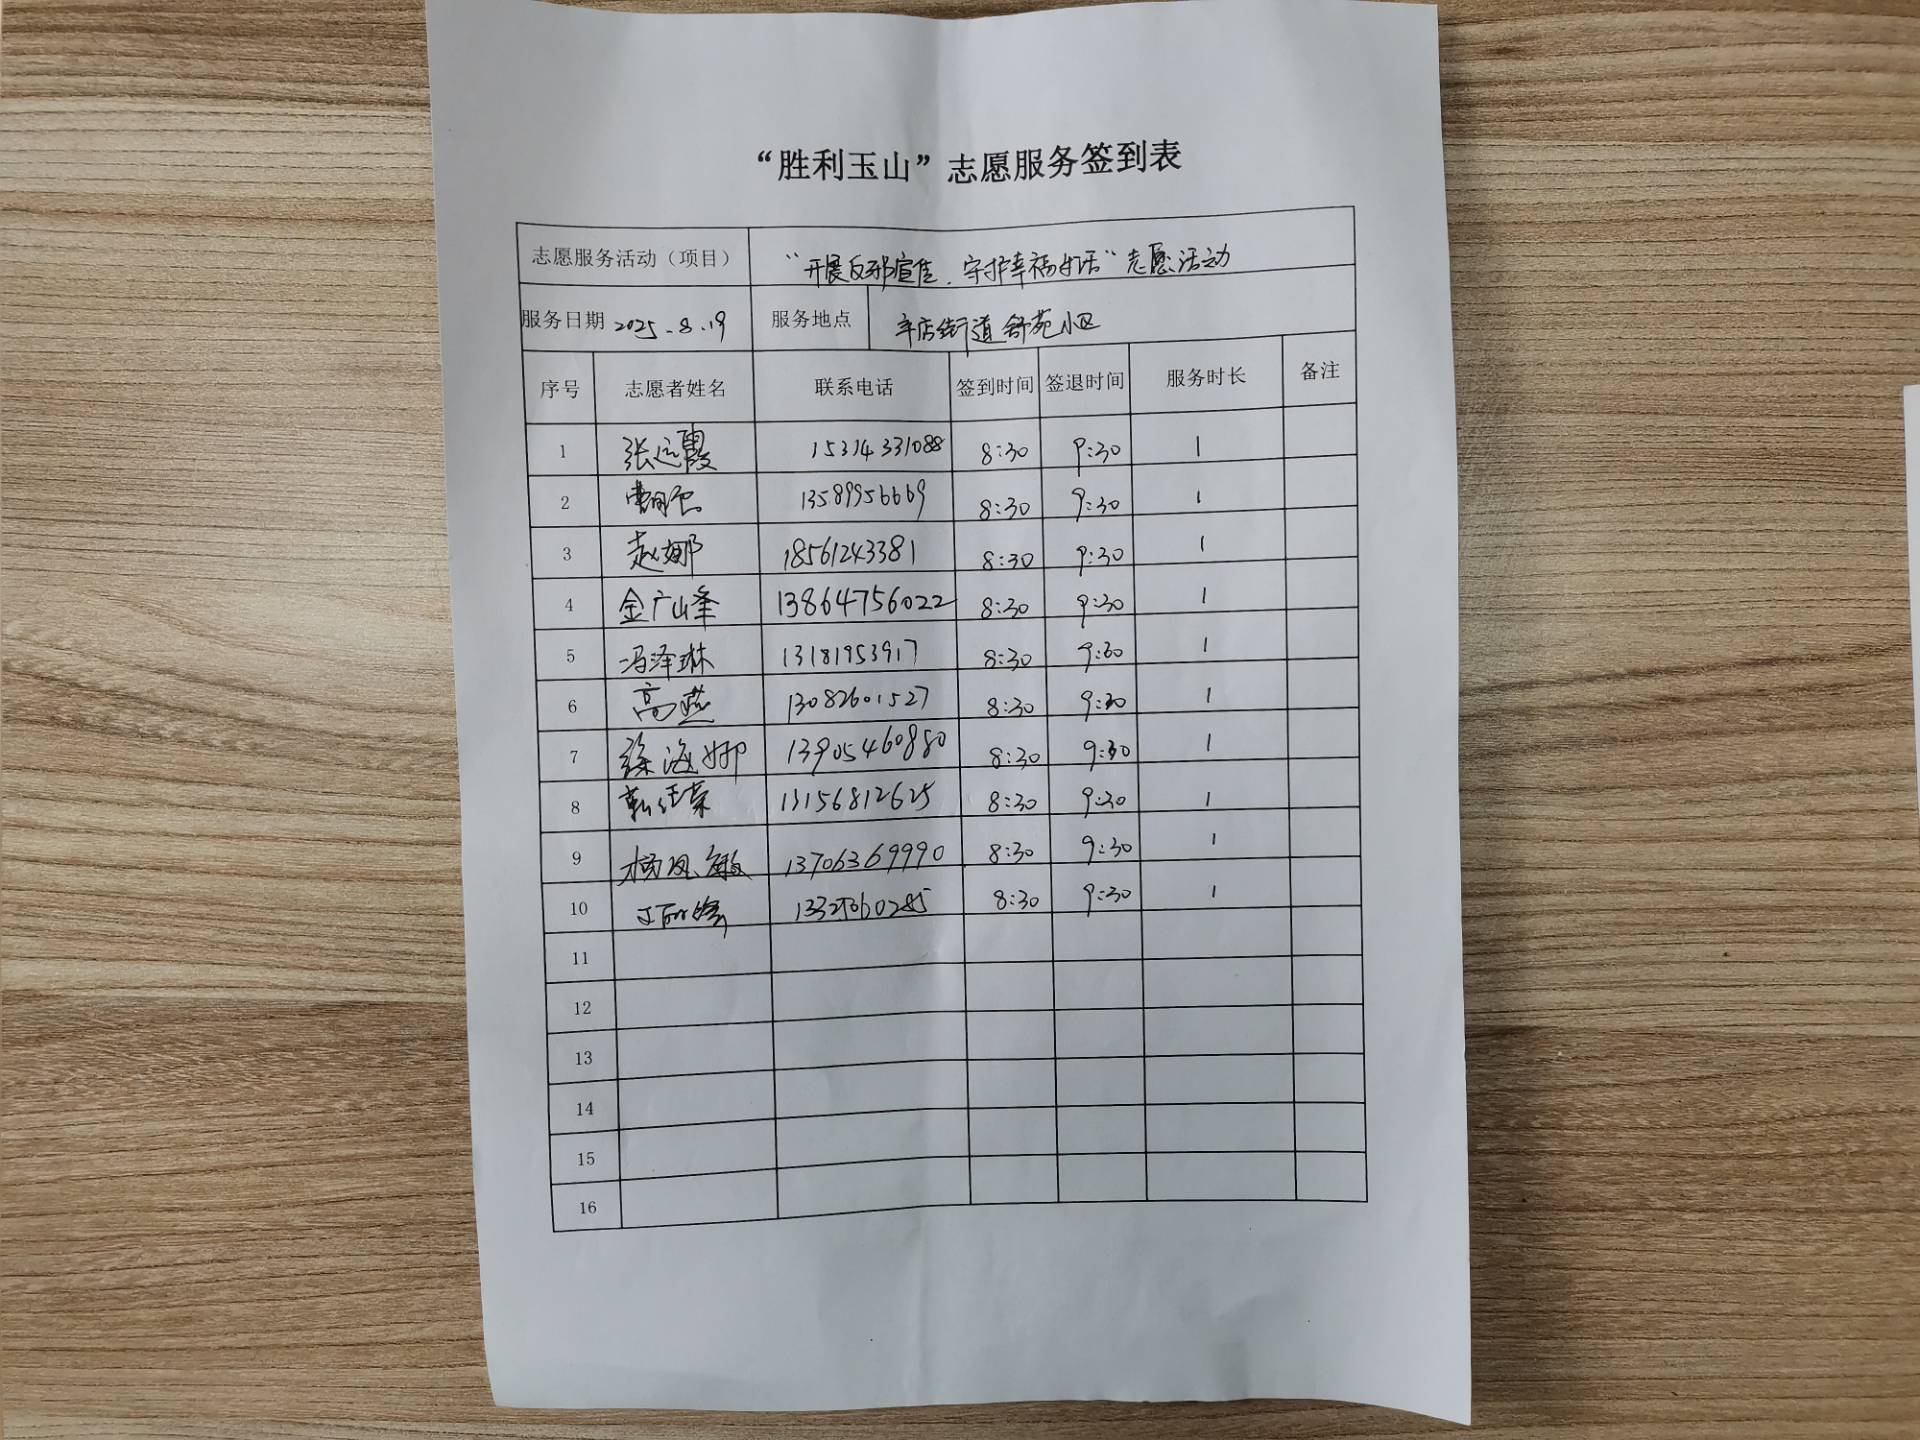 “胜利玉山”志愿服务签到表
志愿服务活动（项目） “开展反邪宣传，守护幸福生活”志愿活动
服务日期 2025.8.19 服务地点 辛店街道舒苑小区
序号 志愿者姓名 联系电话 签到时间 签退时间 服务时长 备注
1 张远霞 15314331088 8:30 9:30 1
2 13589956669 8:30 9:30 1
3 赵娜 18561243381 8:30 9:30 1
4 金广峰 13864756022 8:30 9:30 1
5 冯泽琳 13181953917 8:30 9:30 1
6 高燕 13082601527 8:30 9:30 1
7 徐海娜 13905460880 8:30 9:30 1
8 13156812625 8:30 9:30 1
9 杨凤敏 13706369990 8:30 9:30 1
10 8:30 9:30 1
11
12
13
14
15
16